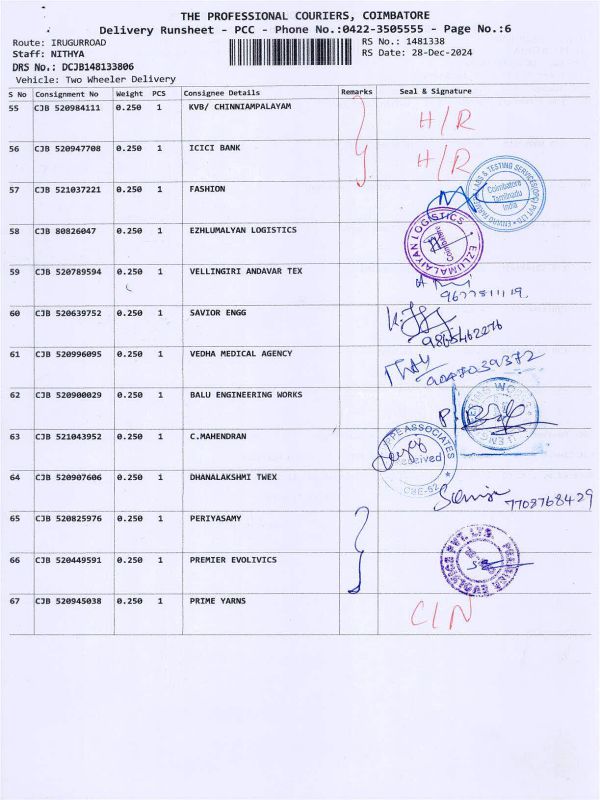 THE PROFESSIONAL COURIERS, COIMBATORE
Delivery Runsheet - PCC - Phone No.:0422-3505555 - Page No.:6
Route: IRUGURROAD
RS No.: 1481338
Staff: NITHYA
RS Date: 28-Dec-2024
DRS No.: DCJB148133806
Vehicle: Two Wheeler Delivery
S No Consignment No Weight PCS Consignee Details Remarks Seal & Signature
55 CJB 520984111 0.250 1 KVB/ CHINNIAMPALAYAM H/R
56 CJB 520947708 0.250 1 ICICI BANK H/R
57 CJB 521037221 0.250 1 FASHION
Coimbatore
Tamilnadu
India
58 CJB 80826047 0.250 1 EZHLUMALYAN LOGISTICS
EZLUMALAIYAN LOGISTICS
Coimbatore
59 CJB 520789594 0.250 1 VELLINGIRI ANDAVAR TEX
9677811119
60 CJB 520639752 0.250 1 SAVIOR ENGG
9865462276
61 CJB 520996095 0.250 1 VEDHA MEDICAL AGENCY
9047039372
62 CJB 520900029 0.250 1 BALU ENGINEERING WORKS
63 CJB 521043952 0.250 1 C.MAHENDRAN
PPEASSOCIATES
Received
64 CJB 520907606 0.250 1 DHANALAKSHMI TWEX
7708768429
65 CJB 520825976 0.250 1 PERIYASAMY
66 CJB 520449591 0.250 1 PREMIER EVOLIVICS
67 CJB 520945038 0.250 1 PRIME YARNS C/N